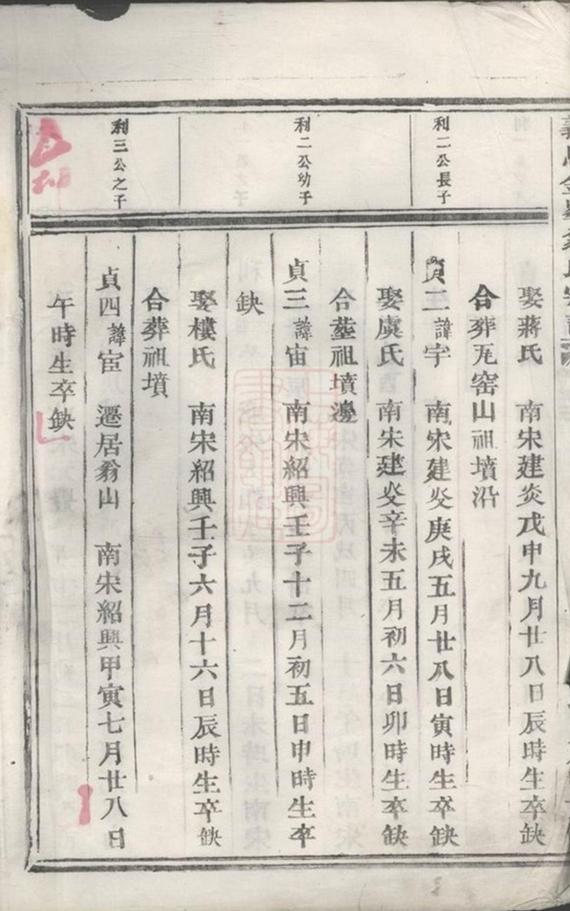 娶蔣氏 南宋建炎戊申九月廿八日辰時生卒缺
合葬瓦窑山祖墳沿
利二公長子
貞二諱宇 南宋建炎庚戌五月廿八日寅時生卒缺
娶虞氏 南宋建炎辛未五月初六日卯時生卒缺
合塟祖墳邊
利二公幼子
貞三諱宙 南宋紹興壬子十二月初五日申時生卒
缺
娶樓氏 南宋紹興壬子六月十六日辰時生卒缺
合葬祖墳
利三公之子
貞四諱宦 遷居翁山 南宋紹興甲寅七月廿八日
午時生卒缺